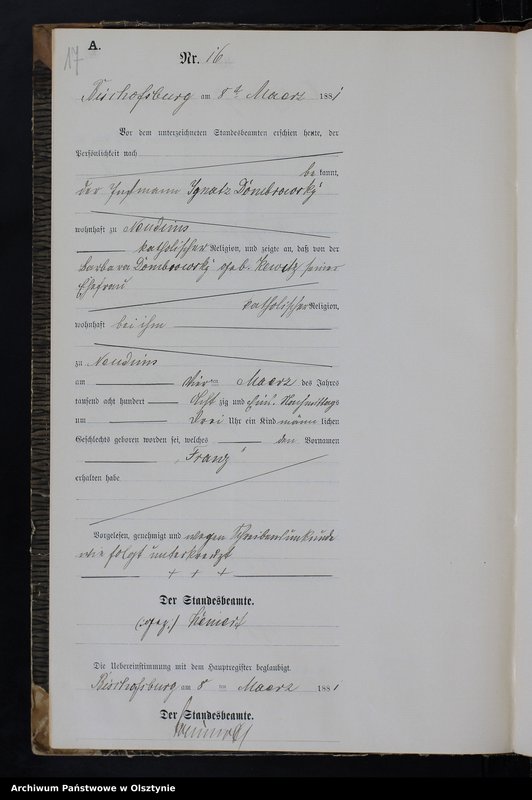 17
A.
Nr. 16
Bischofsburg am 8ten Maerz 1881
Vor dem unterzeichneten Standesbeamten erschien heute, der
Persönlichkeit nach
be kannt,
der Instmann Ignatz Dombrowsky
wohnhaft zu Neudims
katholischer Religion, und zeigte an, daß von der
Barbara Dombrowsky geb. Kewitz seiner
Ehefrau
katholischer Religion,
wohnhaft bei ihm
zu Neudims
am vier ten Maerz des Jahres
tausend acht hundert Acht zig und Eins Nachmittags
um Drei Uhr ein Kind männ lichen
Geschlechts geboren worden sei, welches den Vornamen
„Franz“
erhalten habe.
Vorgelesen, genehmigt und wegen Schreibensunkunde
wie folgt unterkreuzt
+ + +
Der Standesbeamte.
(gez.)
Die Uebereinstimmung mit dem Hauptregister beglaubigt.
Bischofsburg am 8 ten Maerz 1881
Der Standesbeamte.
Archiwum Państwowe w Olsztynie